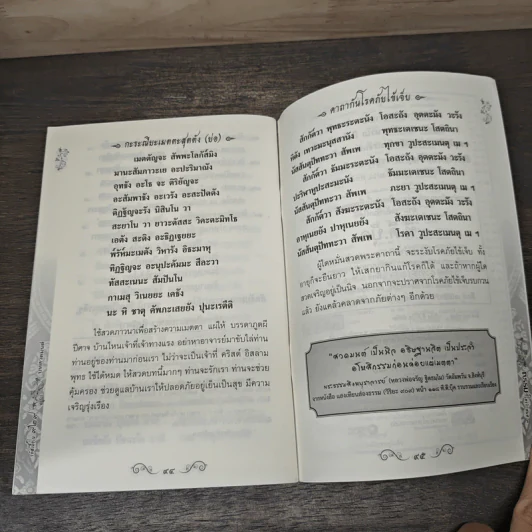 กะระณียะเมตตะสุตตัง (ย่อ)
เมตตัญจะ สัพพะโลกัสมิง
มานะสัมภาวะเย อะปะริมาณัง
อุทธัง อะโธ จะ ติริยัญจะ
อะสัมพาธัง อะเวรัง อะสะปัตตัง
ติฏฐัญจะรัง นิสินโน วา
สะยาโน วา ยาวะตัสสะ วิคะตะมิทโธ
เอตัง สะติง อะธิฏเฐยยะ
พรัหมะเมตัง วิหารัง อิธะมาหุ
ทิฏฐิญจะ อะนุปะคัมมะ สีละวา
ทัสสะเนนะ สัมปันโน
กาเมสุ วิเนยยะ เคธัง
นะ หิ ชาตุ คัพภะเสยยัง ปุนะเรตีติ
ใช้สวดภาวนาเพื่อสร้างความเมตตา แผ่ให้ บรรดาภูตผี
ปีศาจ บ้านไหนเจ้าที่เจ้าทางแรง อย่าหาอาจารย์มาขับไล่ท่าน
ท่านอยู่ของท่านมาก่อนเรา ไม่ว่าจะเป็นเจ้าที่ คริสต์ อิสลาม
พุทธ ใช้ได้หมด ให้สวดบทนี้มากๆ ท่านจะรักเรา ท่านจะช่วย
คุ้มครอง ช่วยดูแลบ้านเราให้ปลอดภัยอยู่เย็นเป็นสุข มีความ
เจริญรุ่งเรือง
๙๔
คาถากันโรคภัยไข้เจ็บ
สักกัตวา พุทธะระตะนัง โอสะถัง อุตตะมัง วะรัง
หิตัง เทวะมะนุสสานัง พุทธะเตเชนะ โสตถินา
นัสสันตุปัททะวา สัพเพ ทุกขา วูปะสะเมนตุ เม ฯ
สักกัตวา ธัมมะระตะนัง โอสะถัง อุตตะมัง วะรัง
ปะริฬาหูปะสะมะนัง ธัมมะเตเชนะ โสตถินา
นัสสันตุปัททะวา สัพเพ ภะยา วูปะสะเมนตุ เม ฯ
สักกัตวา สังฆะระตะนัง โอสะถัง อุตตะมัง วะรัง
อาหุเนยยัง ปาหุเนยยัง สังฆะเตเชนะ โสตถินา
นัสสันตุปัททะวา สัพเพ โรคา วูปะสะเมนตุ เม ฯ
ผู้ใดหมั่นสวดพระคาถานี้ จะระงับโรคภัยไข้เจ็บ ทั้ง
อายุก็จะยืนยาว ให้เสกยากินแก้โรคก็ได้ และถ้าหากผู้ใด
สวดเจริญอยู่เป็นนิจ นอกจากจะปราศจากโรคภัยไข้เจ็บรบกวน
แล้ว ยังแคล้วคลาดจากภัยต่างๆ อีกด้วย
"สวดมนต์ เป็นนิจ อธิษฐานจิต เป็นประจำ
อโหสิกรรมก่อนค่อยแผ่เมตตา"
พระธรรมสิงหบุราจารย์ (หลวงพ่อจรัญ ฐิตธมฺโม) วัดอัมพวัน จ.สิงห์บุรี
๙๕